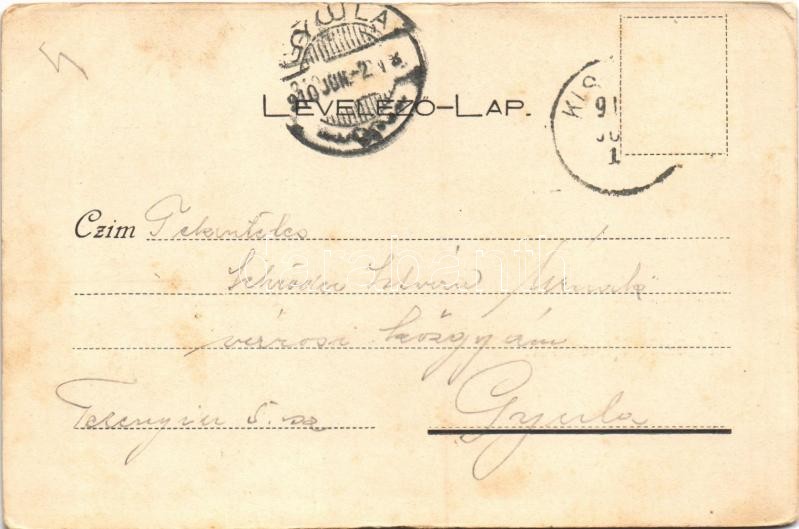 GYULA
910 JUN. 2
KIS
91
JU
1
LEVELEZŐ-LAP.
Czim Tekintetes
Schröder István Úrnak
városi közgyám
5. sz Gyula